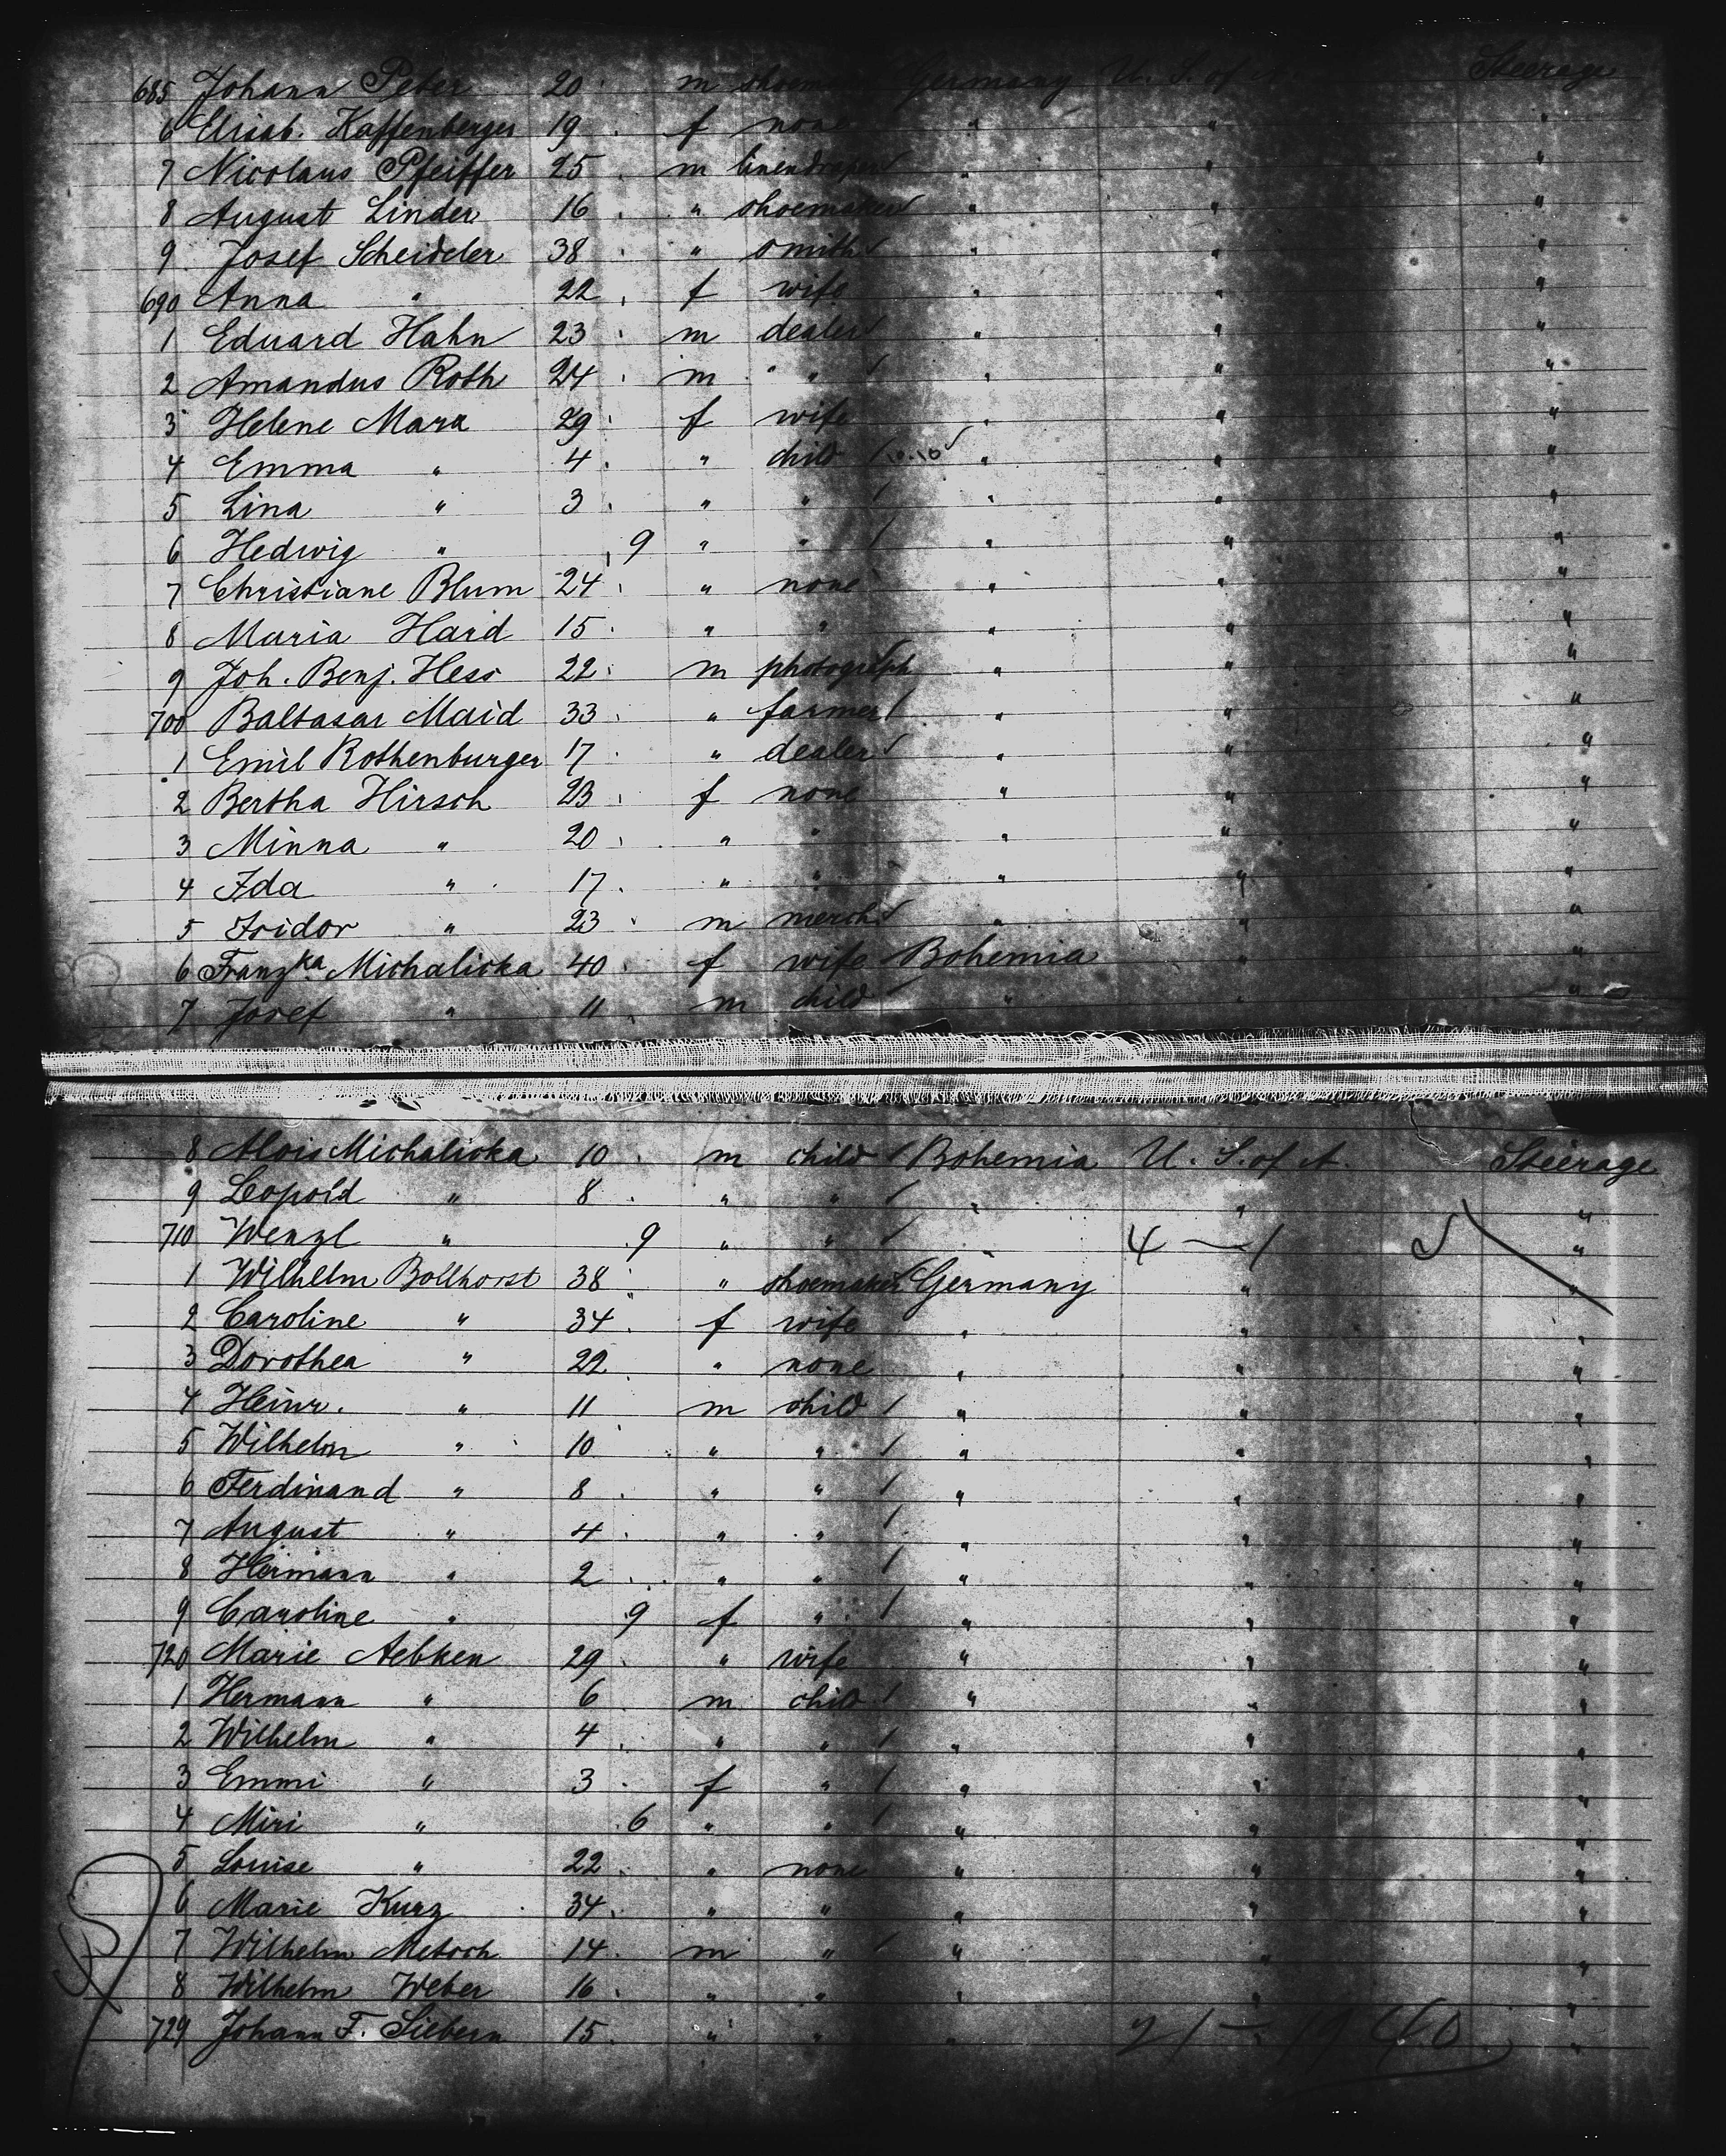 685 Johann Peter 20 m Germany U. S. of Steerage
6 Elisab. Kaffenberger 19 f none " " "
7 Nicolaus Pfeiffer 25 m linendraper " " "
8 August Linder 16 " shoemaker " " "
9 Josef Scheideler 38 " smith " " "
690 Anna " 22 f wife " " "
1 Eduard Hahn 23 m dealer " " "
2 Amandus Roth 24 m " " " "
3 Helene Marx 29 f wife " " "
4 Emma " 4 " child " " "
5 Lina " 3 " " " " "
6 Hedwig " 9 " " " " "
7 Christiane Blum 24 " none " " "
8 Maria Haid 15 " " " " "
9 Joh. Benj. Hess 22 m photograph " " "
700 Baltasar Maid 33 " farmer " " "
1 Emil Rothenburger 17 " dealer " " "
2 Bertha Hirsch 23 f none " " "
3 Minna " 20 " " " " "
4 Ida " 17 " " " " "
5 Isidor " 23 m merch " " "
6 Franzka Michalicka 40 f wife Bohemia " "
7 Josef " 11 m child " " "
8 Alois Michalicka 10 m child Bohemia U. S. of A. Steerage
9 Leopold " 8 " " " " "
710 Wenzl " 9 " " 4 — 1 "
1 Wilhelm Bollhorst 38 " shoemaker Germany " "
2 Caroline " 34 f wife " " "
3 Dorothea " 22 " none " " "
4 Heinr. " 11 m child " " "
5 Wilhelm " 10 " " " " "
6 Ferdinand " 8 " " " " "
7 August " 4 " " " " "
8 Hermann " 2 " " " " "
9 Caroline " 9 f " " " "
720 Marie Aebken 29 " wife " " "
1 Hermann " 6 m child " " "
2 Wilhelm " 4 " " " " "
3 Emmi " 3 f " " " "
4 Miri " 6 " " " " "
5 Louise " 22 " none " " "
6 Marie Kurz 34 " " " " "
7 Wilhelm Metsch 14 m " " " "
8 Wilhelm Weber 16 " " " " "
729 Johann F. Siebern 15 " " " 21 — "